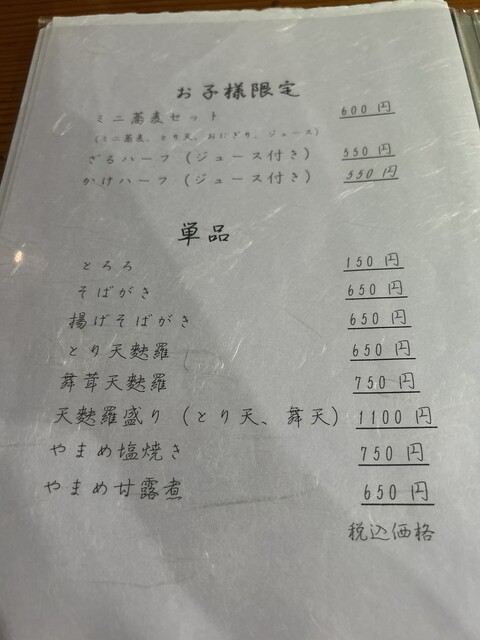 お子様限定
ミニ蕎麦セット 600円
(ミニ蕎麦、とり天、おにぎり、ジュース)
ざるハーフ(ジュース付き) 550円
かけハーフ(ジュース付き) 550円
単品
とろろ 150円
そばがき 650円
揚げそばがき 650円
とり天麩羅 650円
舞茸天麩羅 750円
天麩羅盛り(とり天、舞天) 1100円
やまめ塩焼き 750円
やまめ甘露煮 650円
税込価格